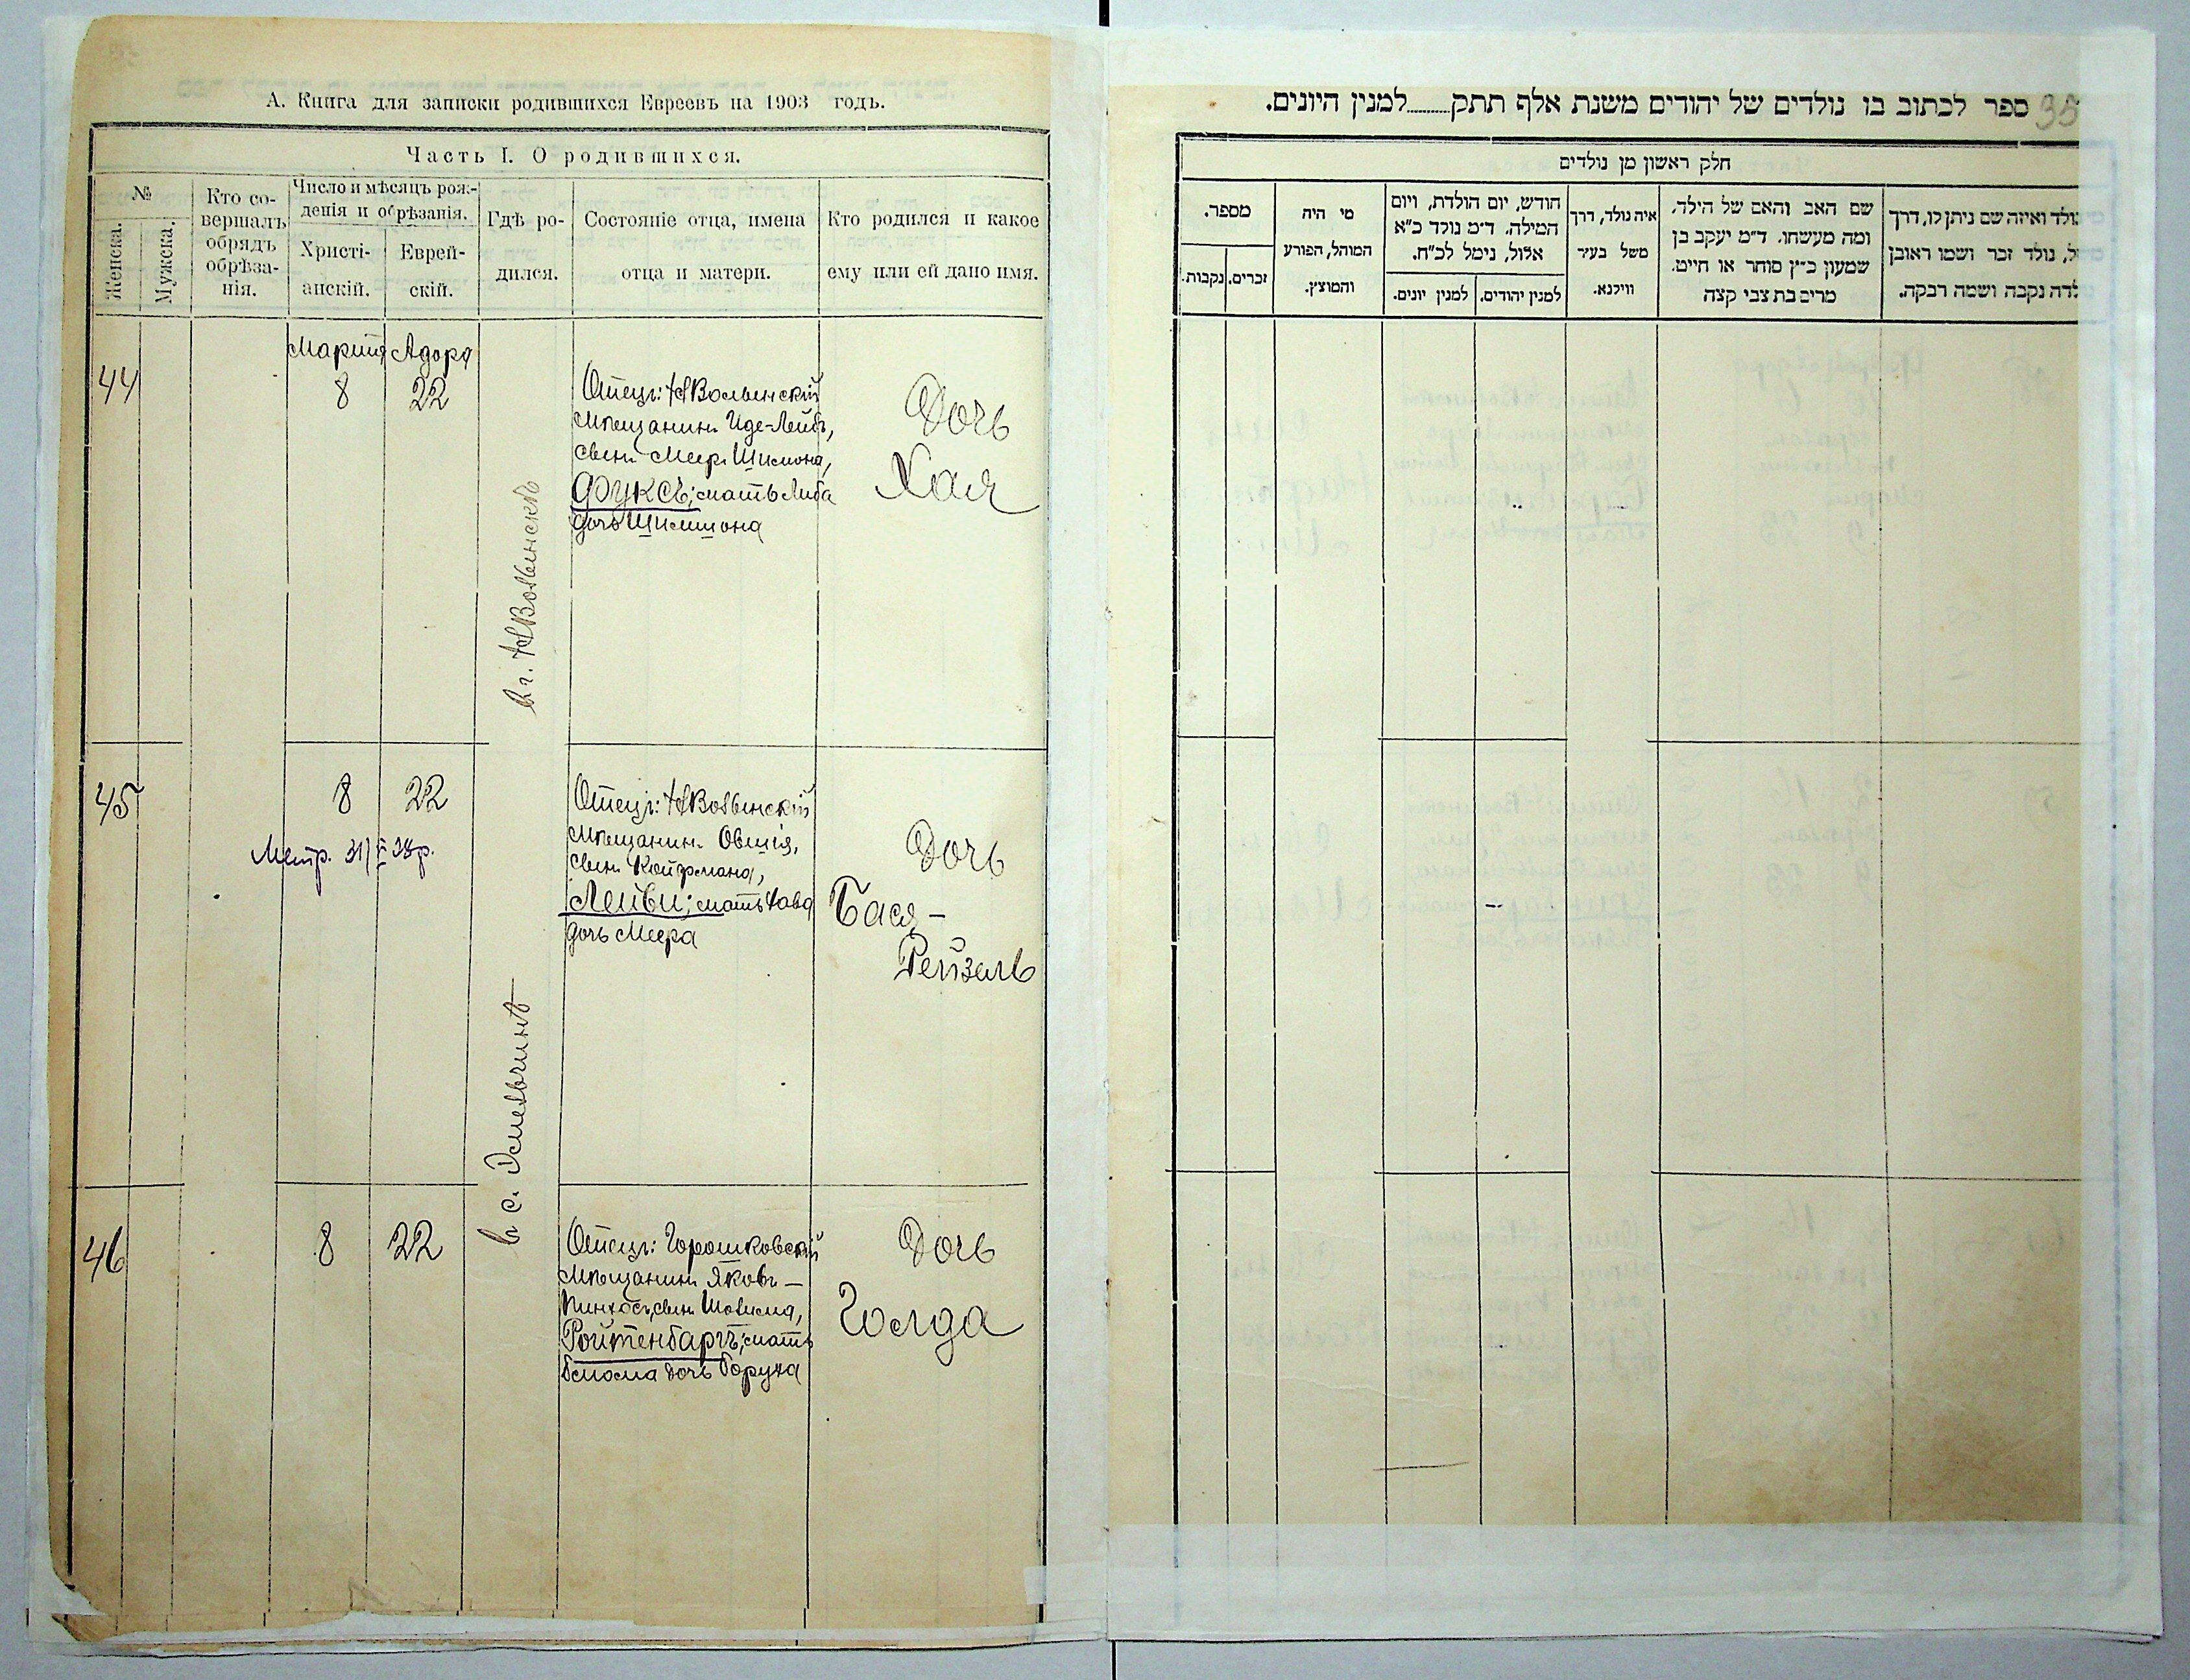 А. Книга для записки родившихся Евреевъ на 1903 годъ.
Часть I. О родившихся.
№
Женска.
Мужска.
Кто со-
вершалъ
обрядъ
обрѣза-
нія.
Число и мѣсяцъ рож-
денія и обрѣзанія.
Христі-
анскій.
Еврей-
скій.
Гдѣ ро-
дился.
Состояніе отца, имена
отца и матери.
Кто родился и какое
ему или ей дано имя.
Марта Адора
44
8 22
в г. НВолынскѣ
Отецъ: НВолынскій
мѣщанинъ Иде-Лейб,
сынъ Меер Шимона,
Фуксъ; мать Либа
дочь Шимшона
Дочь
Хая
45
8 22
Метр. 31/ 38р.
Отецъ: НВолынскій
мѣщанинъ Овшія,
сынъ Койфмана,
Лейви; мать Хава
дочь Меера
Дочь
Бася-
Рейзель
в с. Эмельчинѣ
46
8 22
Отецъ: Горошковскій
мѣщанинъ Яковъ-
Пинхосъ, сынъ
Ройтенбаргъ; мать
дочь Боруха
Дочь
Голда
38
ספר לכתוב בו נולדים של יהודים משנת אלף תתק למנין היונים.
חלק ראשון מן נולדים
מספר.
זכרים.
נקבות.
מי היה
המוהל, הפורע
והמוצץ.
חודש, יום הולדת, ויום
המילה. ד״מ נולד כ״א
אלול, נימל לכ״ח.
למנין יונים.
למנין יהודים.
איה נולד, דרך
משל בעיר
ווילנא.
שם האב והאם של הילד,
ומה מעשהו. ד״מ יעקב בן
שמעון כ״ץ סוחר או חייט.
מרים בת צבי קצה
ולד ואיזה שם ניתן לו, דרך
ל, נולד זכר ושמו ראובן
לדה נקבה ושמה רבקה.